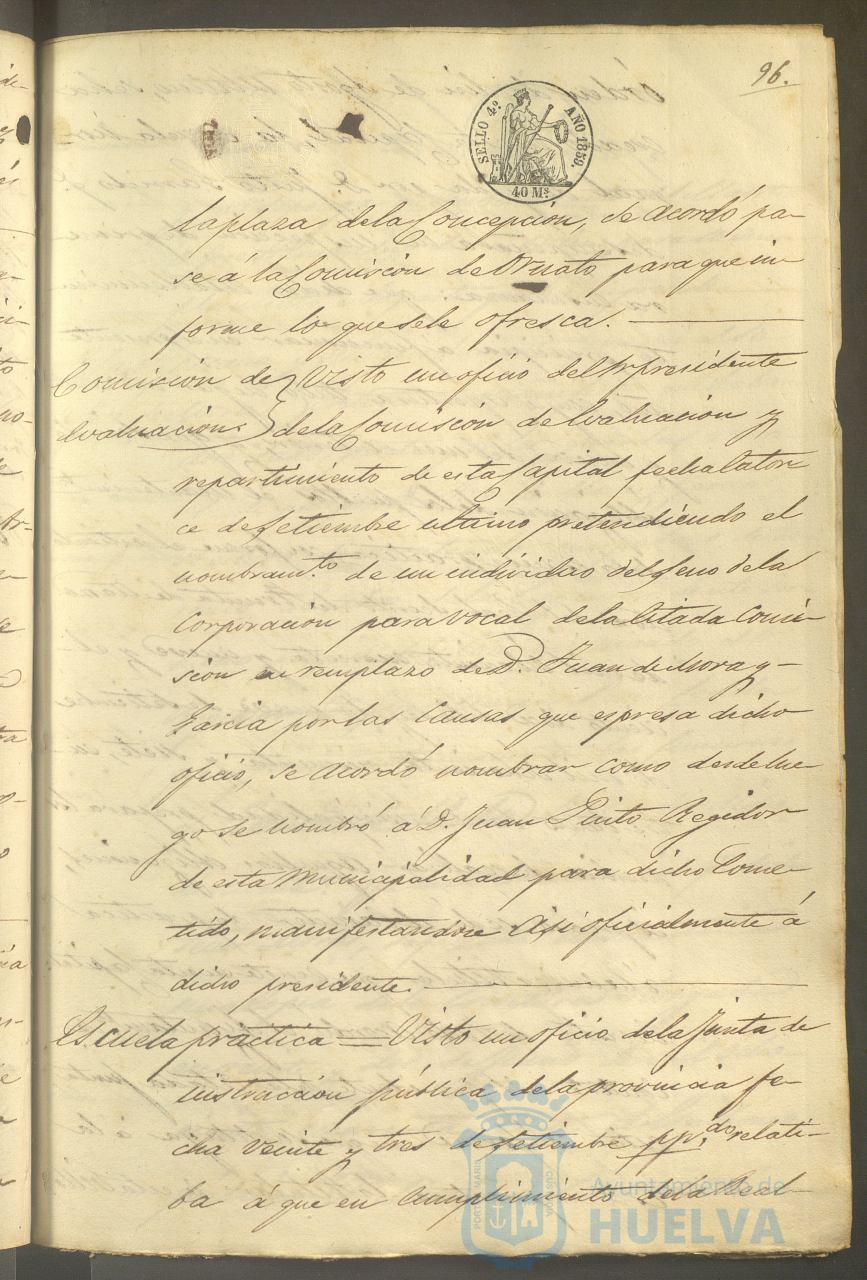 96.
SELLO 4º AÑO 1859.
40 Ms.
la plaza de la Concepción, se acordó pa-
se á la Comisión de Ornato para que in-
forme lo que se le ofresca.
Comisión de Visto un oficio del Sr presidente
evaluacion. de la Comisión de evaluacion y
repartimiento de esta Capital fecha Cator
ce de Setiembre ultimo pretendiendo el
nombramto. de un individuo del seno de la
Corporacion para vocal de la Citada Comi-
sion en remplazo de D. Juan de Mora y
Garcia por las Causas que espresa dicho
oficio, se acordó nombrar como desde lue
go se nombró á D. Juan Pinto Regidor
de esta Municipalidad para dicho Come-
tido, manifestandose Asi oficialmente á
dicho presidente.
Escuela práctica = Visto un oficio de la Junta de
instruccion pública de la provincia fe-
cha veinte y tres de Setiembre pp.do relati-
ba á que en Cumplimiento de la Real
Ayuntamiento de
HUELVA